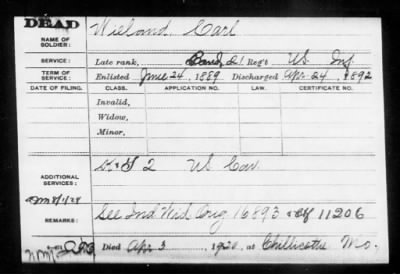 DEAD
NAME OF SOLDIER: Wieland, Carl
SERVICE: Late rank, Band, 21 Reg't US Inf
TERM OF SERVICE: Enlisted June 24, 1889 Discharged Apr. 24, 1892
DATE OF FILING. CLASS. APPLICATION NO. LAW. CERTIFICATE NO.
Invalid,
Widow,
Minor,
ADDITIONAL SERVICES: 2 US Cav.
REMARKS: See Ind Wid Orig 16893 Ctf 11206
Died Apr 3, 1920, at Chillicothe Mo.